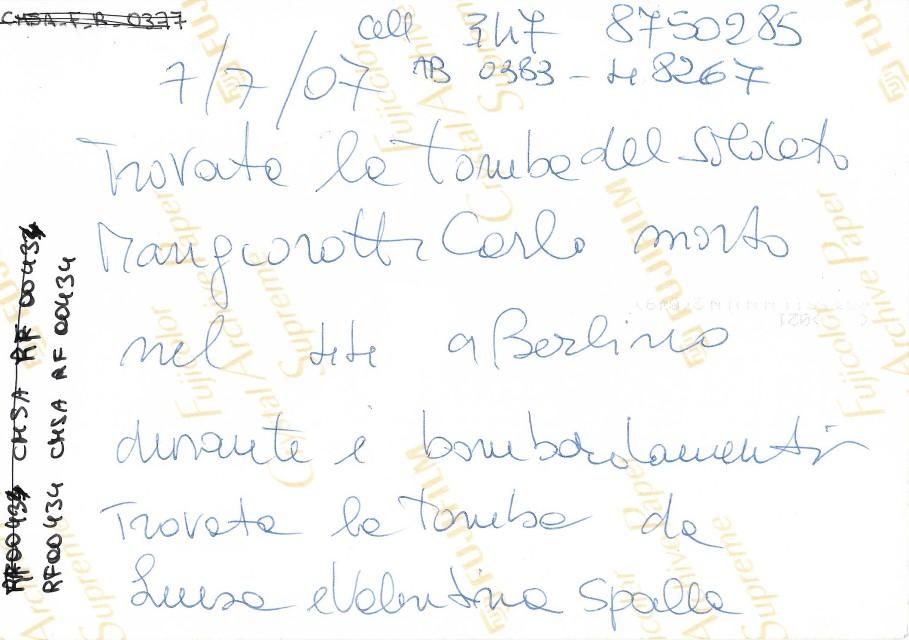 CHSA F.B. 0377
cell 347 8750285
7/7/07 AB 0383-48267
Trovata la tomba del soldato
Mangiarotti Carlo morto
nel 44 a Berlino
durante i bombardamenti
Trovata la tomba da
Luisa e Valentina Spalla
CHSA RF
RF00434 CHSA RF 00434
FUJIFILM
Fujicolor
Crystal Archive Paper
Supreme